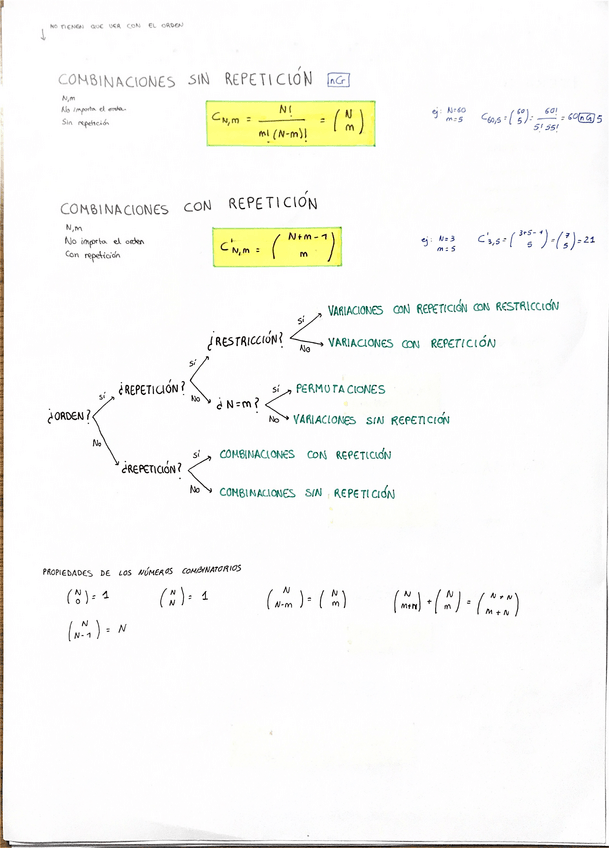 ↓ NO TIENEN QUE VER CON EL ORDEN
COMBINACIONES SIN REPETICIÓN nCr
N,m
No importa el orden
Sin repetición
C_{N,m} = N! / m! (N-m)! = (N m)
ej: N=60
m=5
C_{60,5} = (60 5) = 60! / 5! 55! = 60 nCr 5
COMBINACIONES CON REPETICIÓN
N,m
No importa el orden
Con repetición
C'_{N,m} = (N+m-1 m)
ej: N=3
m=5
C'_{3,5} = (3+5-1 5) = (7 5) = 21
¿ORDEN?
Sí
¿REPETICIÓN?
Sí
¿RESTRICCIÓN?
Sí
VARIACIONES CON REPETICIÓN CON RESTRICCIÓN
No
VARIACIONES CON REPETICIÓN
No
¿N=m?
Sí
PERMUTACIONES
No
VARIACIONES SIN REPETICIÓN
No
¿REPETICIÓN?
Sí
COMBINACIONES CON REPETICIÓN
No
COMBINACIONES SIN REPETICIÓN
PROPIEDADES DE LOS NÚMEROS COMBINATORIOS
(N 0) = 1 (N N) = 1 (N N-m) = (N m) (N m+N) + (N m) = (N+N m+N)
(N N-1) = N